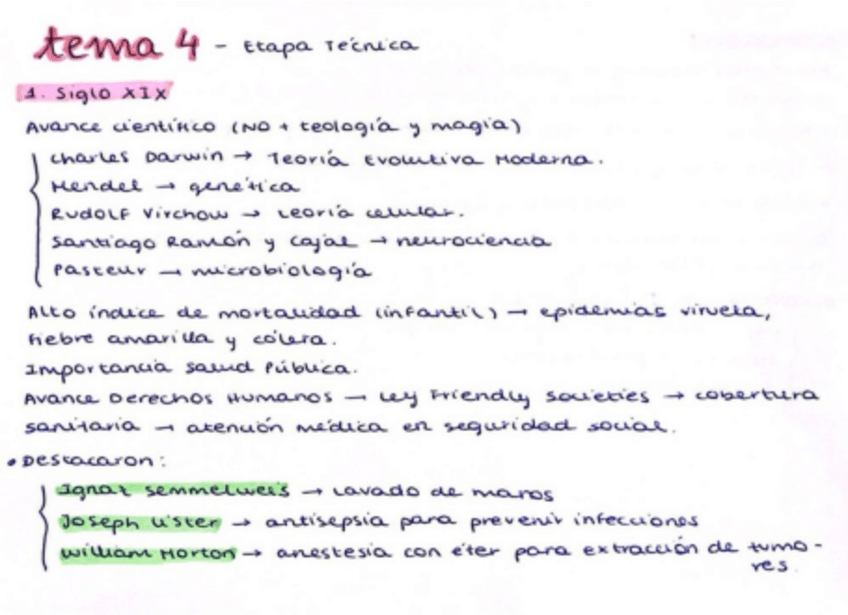 tema 4 - Etapa Técnica
1. Siglo XIX
Avance científico (NO + teología y magia)
Charles Darwin → Teoría Evolutiva Moderna.
Mendel → genética
Rudolf Virchow → teoría celular.
Santiago Ramón y Cajal → neurociencia
Pasteur → microbiología
Alto índice de mortalidad (infantil) → epidemias viruela,
fiebre amarilla y cólera.
Importancia salud Pública.
Avance Derechos Humanos → Ley Friendly societies → cobertura
sanitaria → atención médica en seguridad social.
• Destacaron:
Ignat semmelweis → lavado de manos
Joseph Lister → antisepsia para prevenir infecciones
William Morton → anestesia con éter para extracción de tumo-
res.